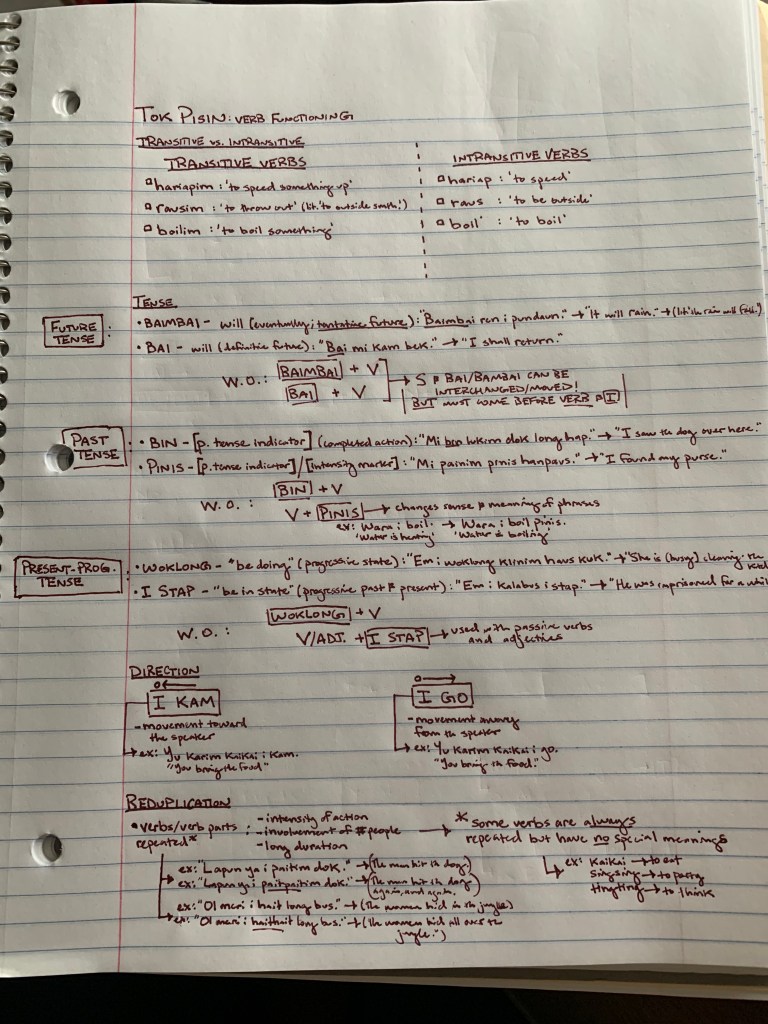 TOK PISIN: VERB FUNCTIONING
TRANSITIVE VS. INTRANSITIVE
TRANSITIVE VERBS
hariapim : 'to speed something up'
rausim : 'to throw out' (lit. 'to outside smth.')
boilim : 'to boil something'
INTRANSITIVE VERBS
hariap : 'to speed'
raus : 'to be outside'
boil : 'to boil'
TENSE
FUTURE TENSE :
• BAIMBAI - will (eventually; tentative future): "Baimbai ren i pundaun." → "It will rain." → (lit. 'the rain will fall.')
• BAI - will (definitie future): "Bai mi kam bek." → "I shall return."
W.O.: BAIMBAI + V
BAI + V
→ S & BAI/BAMBAI CAN BE
INTERCHANGED/MOVED!
BUT MUST COME BEFORE VERB & I
PAST TENSE :
• BIN - [p. tense indicator] (completed action): "Mi bin lukim dok long hap." → "I saw the dog over here."
• PINIS - [p. tense indicator]/[intensity marker]: "Mi painim pinis hanpaus." → "I found my purse."
W.O.: BIN + V
V + PINIS → changes sense & meaning of phrases
ex: Wara i boil. → Wara i boil pinis.
'Water is heating' 'Water is boiling'
PRESENT-PROG. TENSE :
• WOKLONG - "be doing" (progressive state): "Em i woklong klinim haus kuk." → "She is (busy) cleaning the
• I STAP - "be in state" (progressive past & present): "Em i kalabus i stap." → "He was imprisoned for a whil
W.O.: WOKLONG + V
V/ADJ. + I STAP → used with passive verbs
and adjectives
DIRECTION
I KAM
- movement toward
the speaker
→ ex: Yu karim kaikai i kam.
"You bring the food"
I GO
- movement away
from the speaker
→ ex: Yu karim kaikai i go.
"You bring th food."
REDUPLICATION
• verbs/verb parts repeated* :
- intensity of action
- involvement of # people
- long duration
→ * some verbs are always
repeated but have no special meanings
→ ex: kaikai → to eat
singsing → to party
tingting → to think
ex: "Lapun ya i paitim dok." → (The man hit th dog)
ex: "Lapun ya i paitpaitim dok." → (The man hit th dog again, and again.)
ex: "Ol meri i hait long bus." → (The women hid in th jungle)
ex: "Ol meri i haithait long bus." → (The women hid all over the
jungle.")